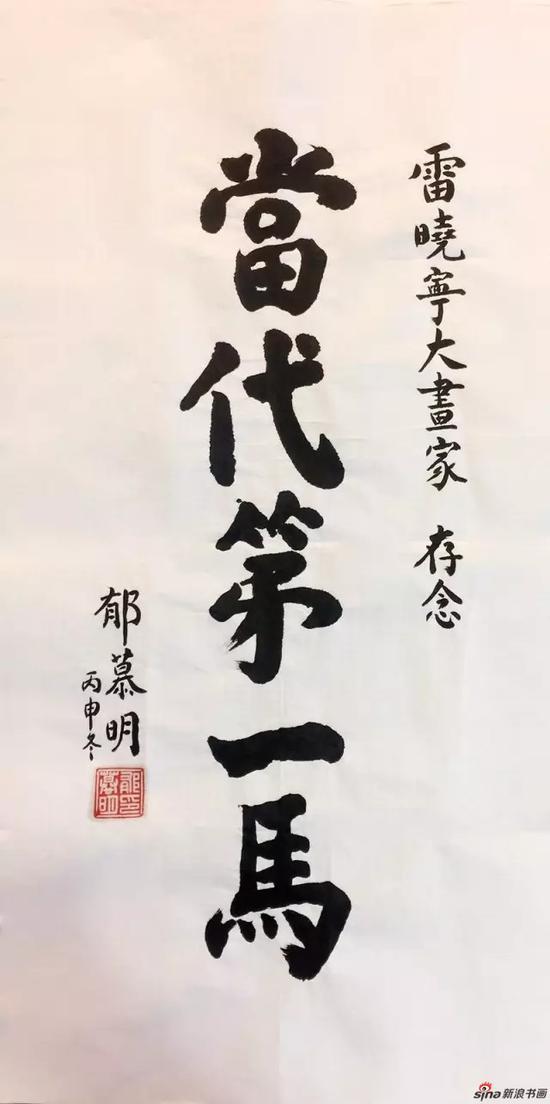 雷曉寧大畫家 存念
當代第一馬
郁慕明
丙申冬
sina新浪书画